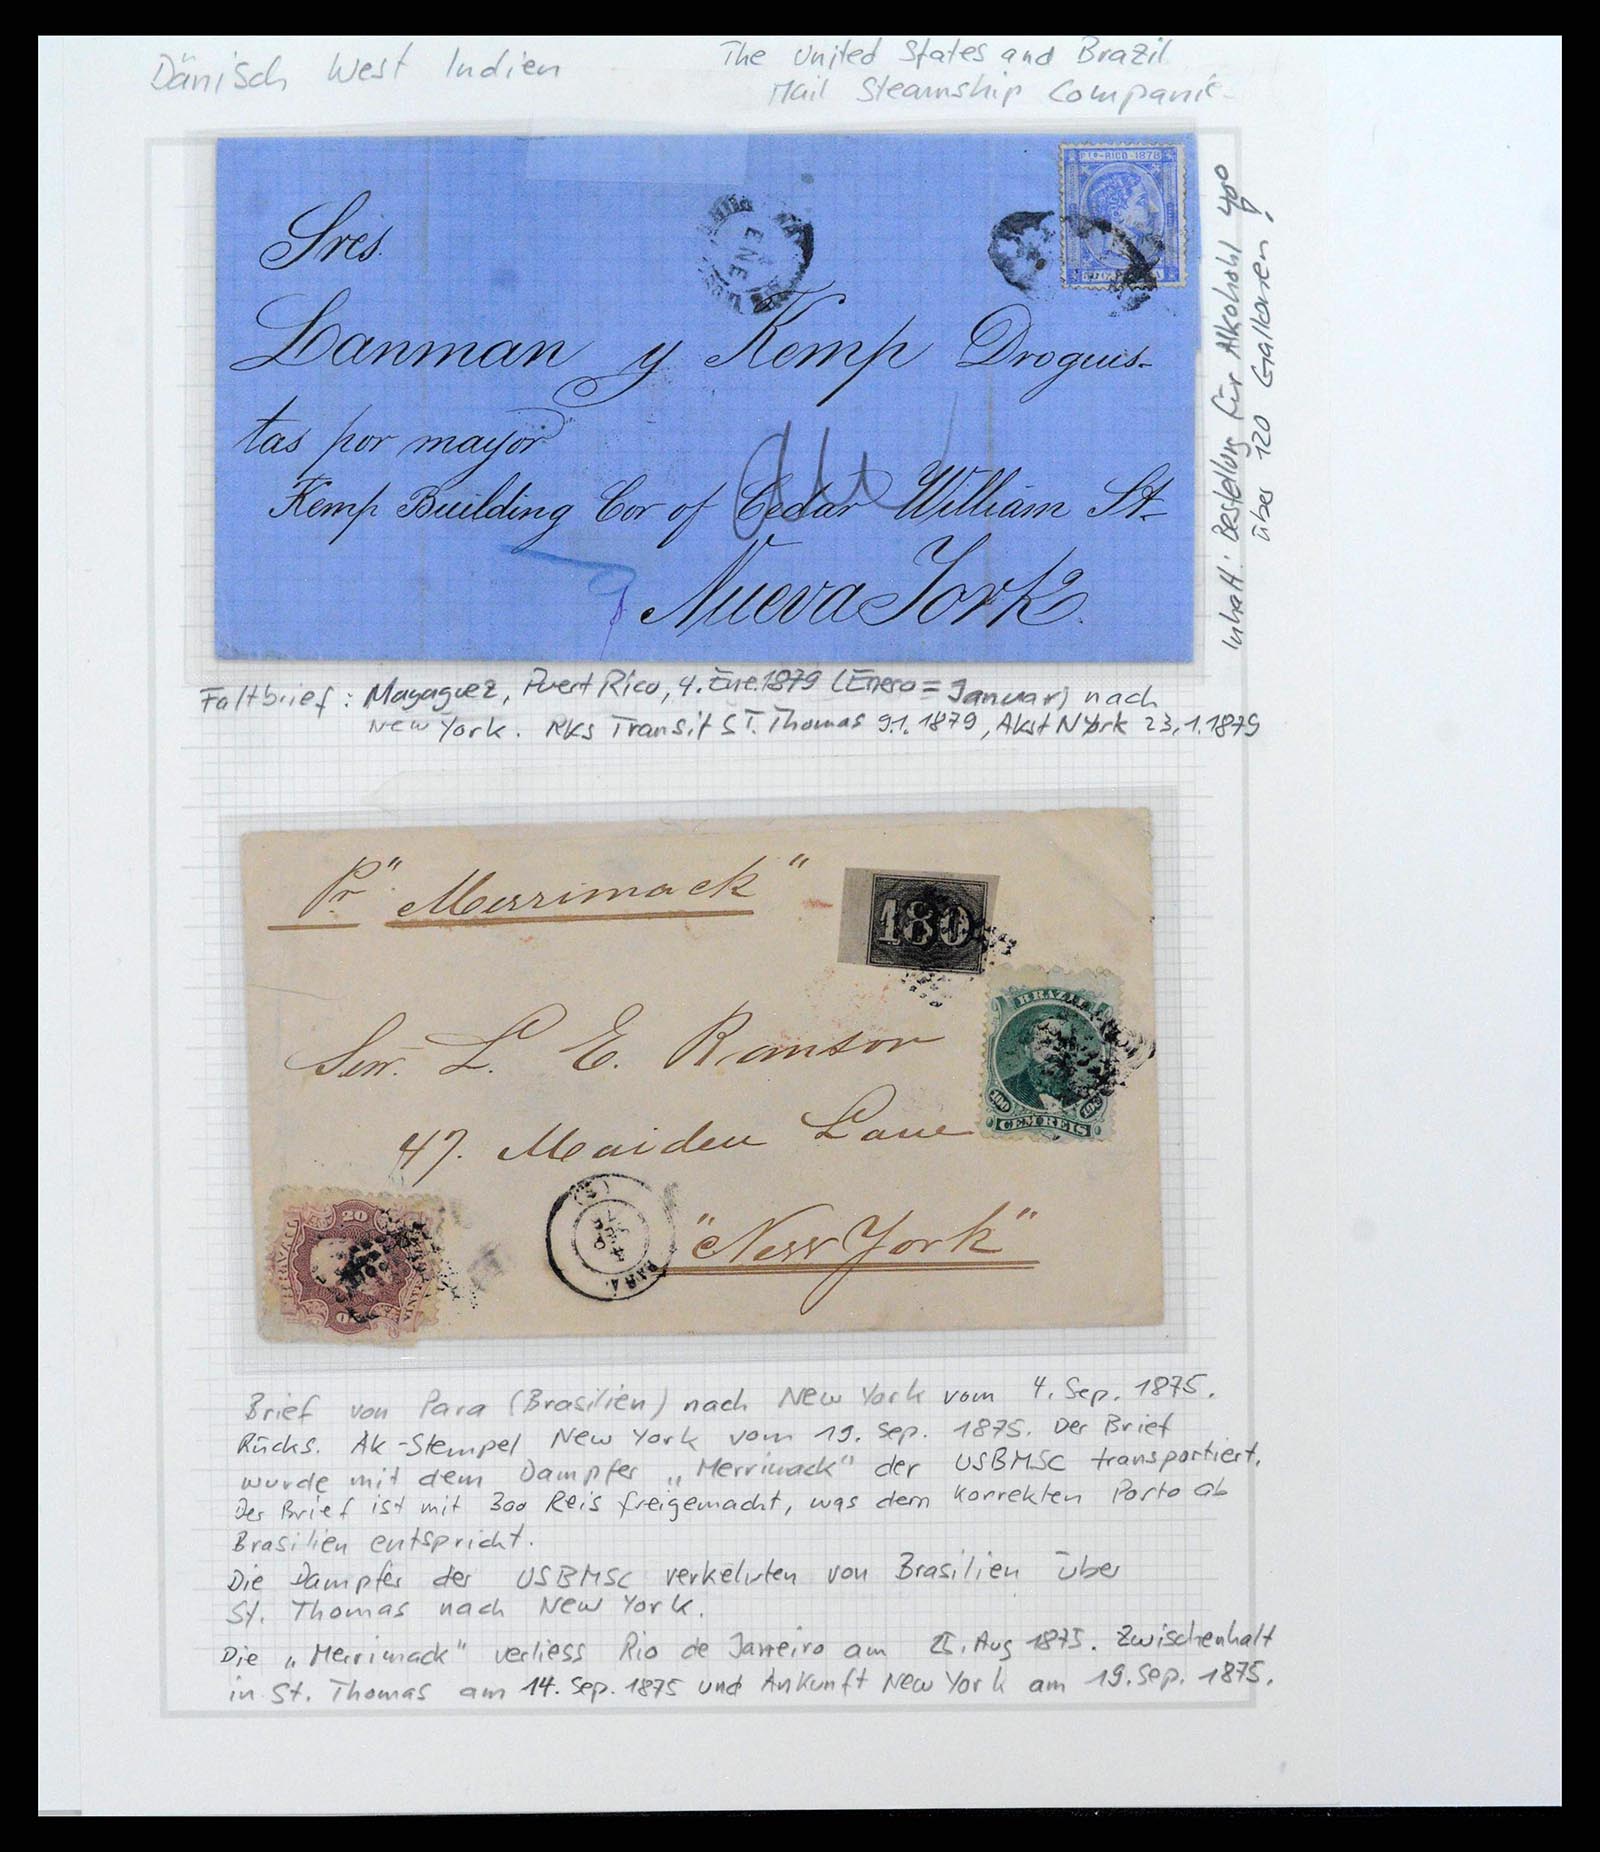 Dänisch West Indien
The United States and Brazil
Mail Steamship Companie
PTO-RICO-1878
ENE
Sres.
Lanman y Kemp Droguis-
tas por mayor
Kemp Building Cor of Cedar William St-
Nueva York.
Inhalt: Bestellung für Alkohohl 40°
über 120 Gallonen!
Faltbrief: Mayaguez, Puert Rico, 4. Ene. 1879 (Enero = Januar) nach
New York. Rks Transit ST. Thomas 9.1.1879, Akst NYork 23.1.1879
Pr "Merrimack"
180
BRAZIL
100 100
CEM REIS
Snr. L. E. Ransor
47. Maiden Lane
"New York"
(S)
4
SEP
75
PARA
20
BRAZIL
VINTE
Brief von Para (Brasilien) nach New York vom 4. Sep. 1875.
Rücks. Ak-Stempel New York vom 19. Sep. 1875. Der Brief
wurde mit dem Dampfer „Merrimack" der USBMSC transportiert.
Der Brief ist mit 300 Reis freigemacht, was dem korrekten Porto ab
Brasilien entspricht.
Die Dampfer der USBMSC verkehrten von Brasilien über
St. Thomas nach New York.
Die „Merrimack" verliess Rio de Janeiro am 25. Aug 1875. Zwischenhalt
in St. Thomas am 14. Sep. 1875 und Ankunft New York am 19. Sep. 1875.